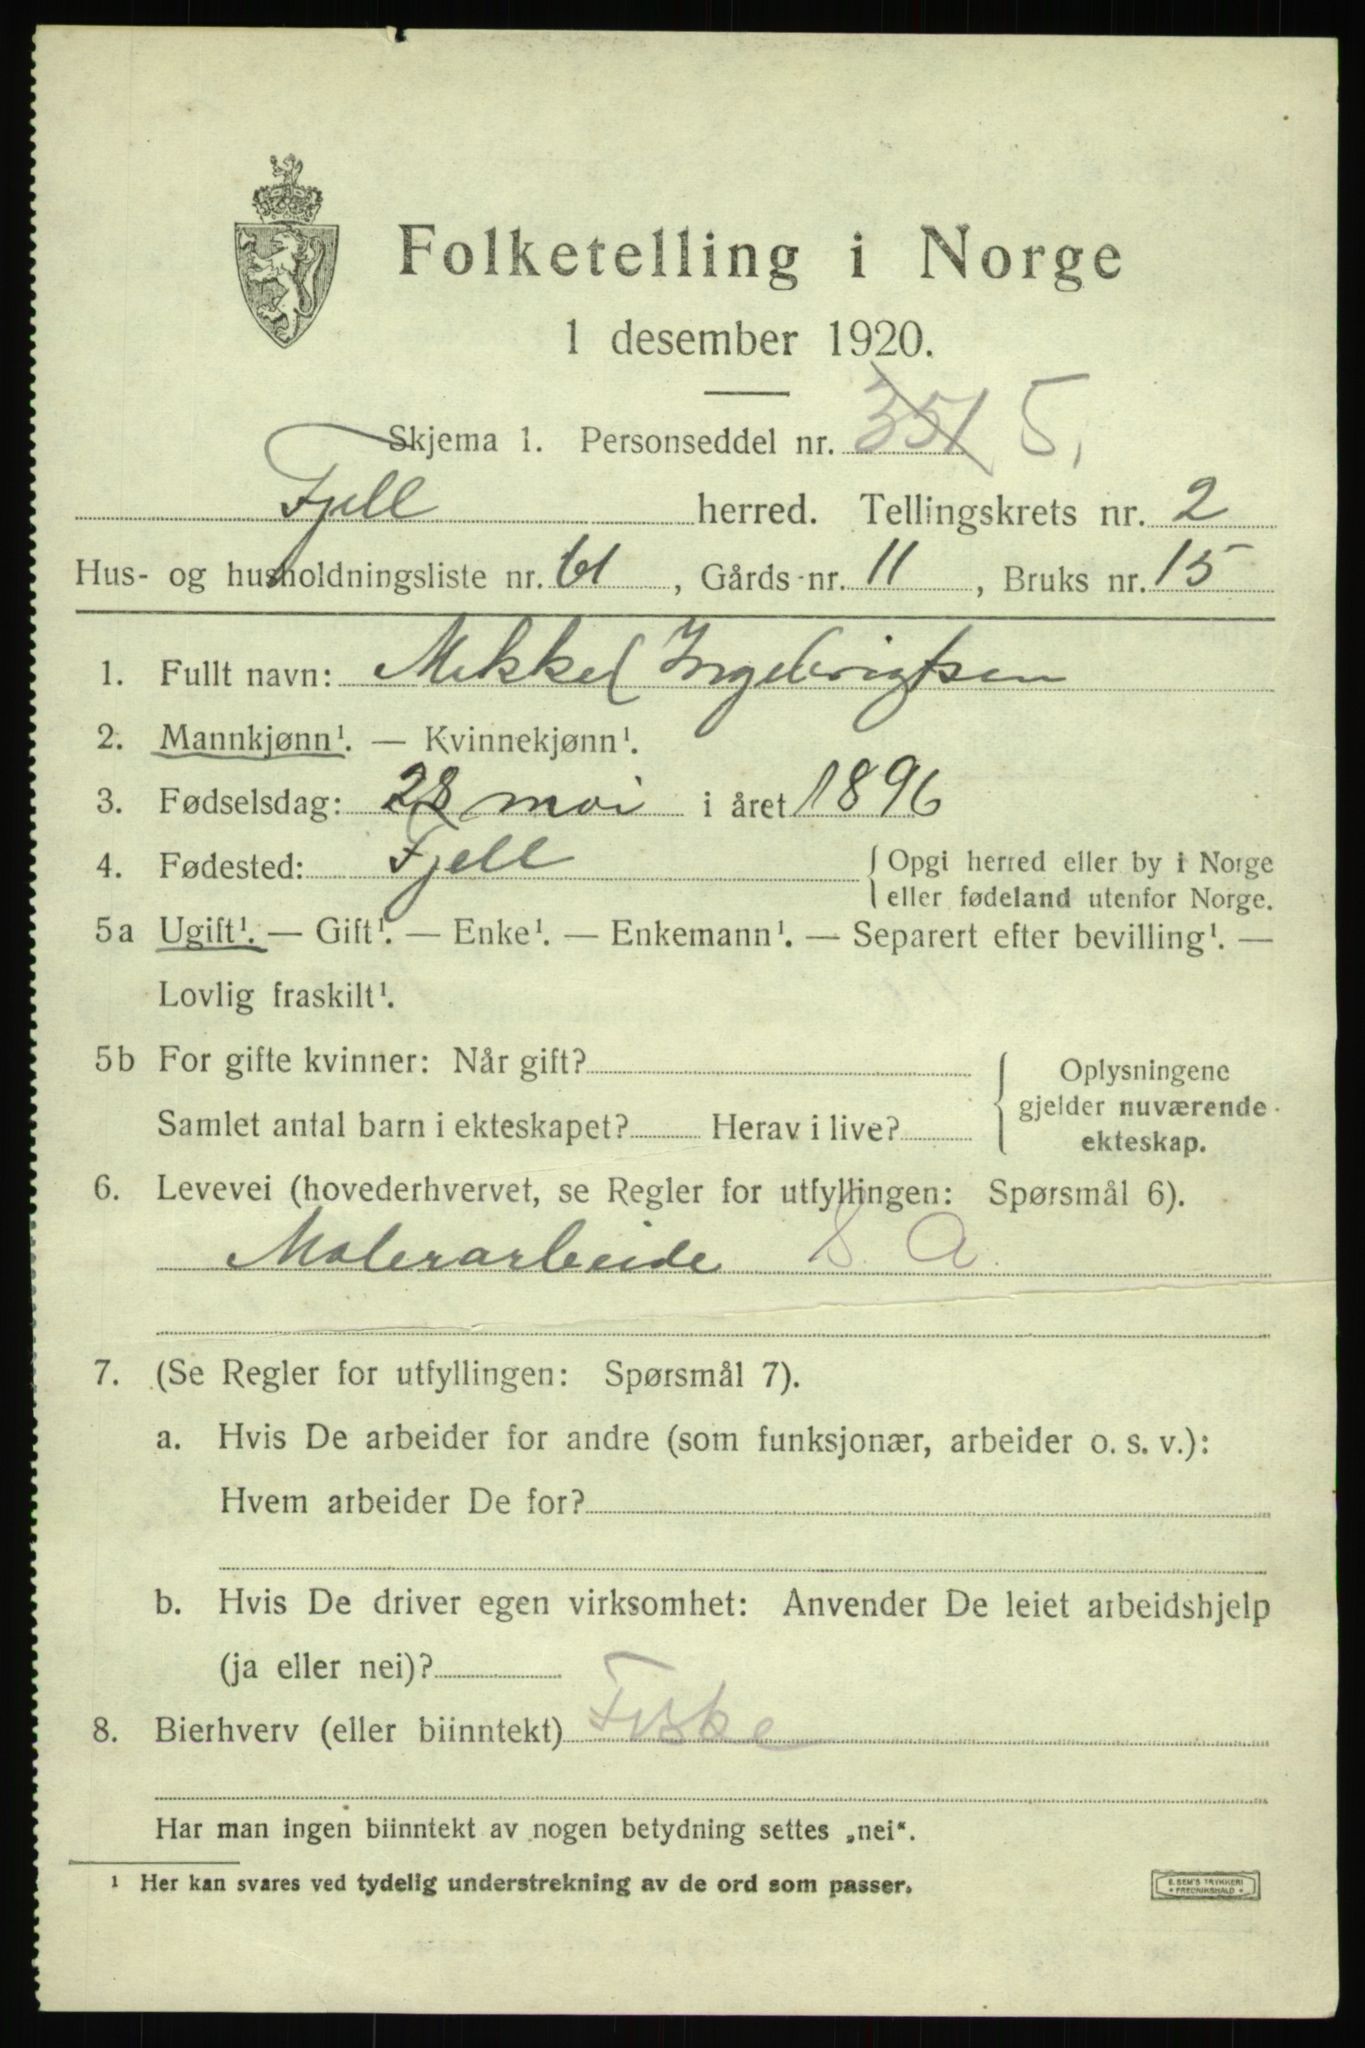 Folketelling i Norge
1 desember 1920.
Skjema 1. Personseddel nr. 351 5,
Fjell herred. Tellingskrets nr. 2
Hus- og husholdningsliste nr. 61, Gårds-nr. 11, Bruks nr. 15
1. Fullt navn: Mikkel Ingebrigtsen
2. Mannkjønn¹. — Kvinnekjønn¹.
3. Fødselsdag: 28 mai i året 1896
4. Fødested: Fjell {Opgi herred eller by i Norge
eller fødeland utenfor Norge.
5a Ugift¹. — Gift¹. — Enke¹. — Enkemann¹. — Separert efter bevilling¹. —
Lovlig fraskilt¹.
5b For gifte kvinner: Når gift?
Samlet antal barn i ekteskapet? Herav i live?
Oplysningene
gjelder nuværende
ekteskap.
6. Levevei (hovederhvervet, se Regler for utfyllingen: Spørsmål 6).
Malerarbeide 8. A
7. (Se Regler for utfyllingen: Spørsmål 7).
a. Hvis De arbeider for andre (som funksjonær, arbeider o. s. v.):
Hvem arbeider De for?
b. Hvis De driver egen virksomhet: Anvender De leiet arbeidshjelp
(ja eller nei)?
8. Bierhverv (eller biinntekt) Fiske
Har man ingen biinntekt av nogen betydning settes „nei“.
¹ Her kan svares ved tydelig understrekning av de ord som passer.
E. SEM'S TRYKKERI
* FREDRIKSHALD *